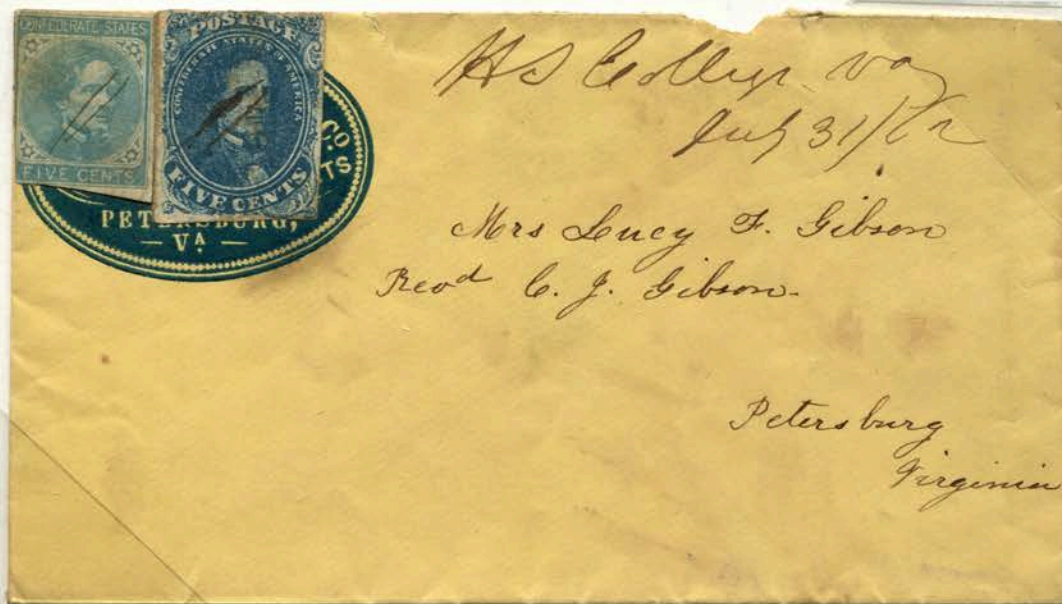 CONFEDERATE STATES
FIVE CENTS
POSTAGE
CONFEDERATE STATES OF AMERICA
FIVE CENTS
Co
TS
PETERSBURG,
— VA. —
H S College Va
July 31/62
Mrs Lucy F. Gibson
Revd C. J. Gibson.
Petersburg
Virginia